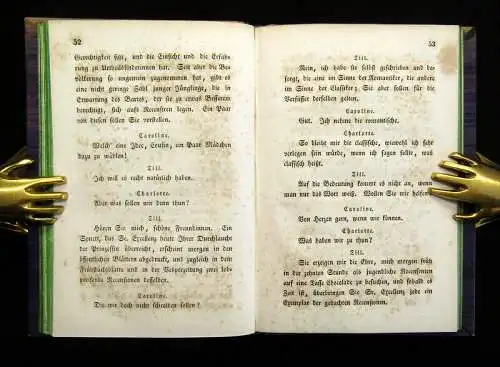 52
Gerechtigkeit säßt, und die Einsicht und die Erfah-
rung zu Unterbibliothekarinnen hat. Seit aber die Be-
völkerung so ungemein zugenommen hat, gibt es
eine nicht geringe Zahl junger Jünglinge, die in
Erwartung des Bartes, der sie zu etwas Besserem
berechtigt, sich aufs Recensiren legen. Ein Paar
von diesen sollen Sie vorstellen.
Caroline.
Welch' eine Idee, Cousin, ein Paar Mädchen
dazu zu wählen!
Till.
Ich will es recht natürlich haben.
Charlotte.
Was sollen wir denn thun?
Till.
Hören Sie mich, schöne Freundinnen. Ein
Sonett, das Se. Excellenz heute Ihrer Durchlaucht
der Prinzessin überreicht, erscheint morgen in den
öffentlichen Blättern abgedruckt, und zugleich in dem
Frühstücksblatte und in der Vesperzeitung zwei lob-
preisende Recensionen desselben.
Caroline.
Die wir doch nicht schreiben sollen?
53
Till.
Nein, ich habe sie selbst geschrieben und be-
sorgt, die eine im Sinne der Romantiker, die andere
im Sinne der Classiker; Sie aber sollen für die
Verfasser derselben gelten.
Caroline.
Gut. Ich nehme die romantische.
Charlotte.
So bleibt mir die classische, wiewohl ich sehr
verlegen sein würde, wenn ich sagen sollte, was
classisch heißt.
Till.
Auf die Bedeutung kommt es nicht an, wenn
man nur das Wort weiß. Wollen Sie mir helfen?
Caroline.
Von Herzen gern, wenn wir können.
Charlotte.
Was haben wir zu thun?
Till.
Sie erzeigen mir die Ehre, mich morgen früh
in der zehnten Stunde als jugendliche Recensenten
auf eine Tasse Chocolade zu besuchen, und sobald es
Zeit ist, überbringen Sie Sr. Excellenz jede ein
Exemplar der gedachten Recensionen.